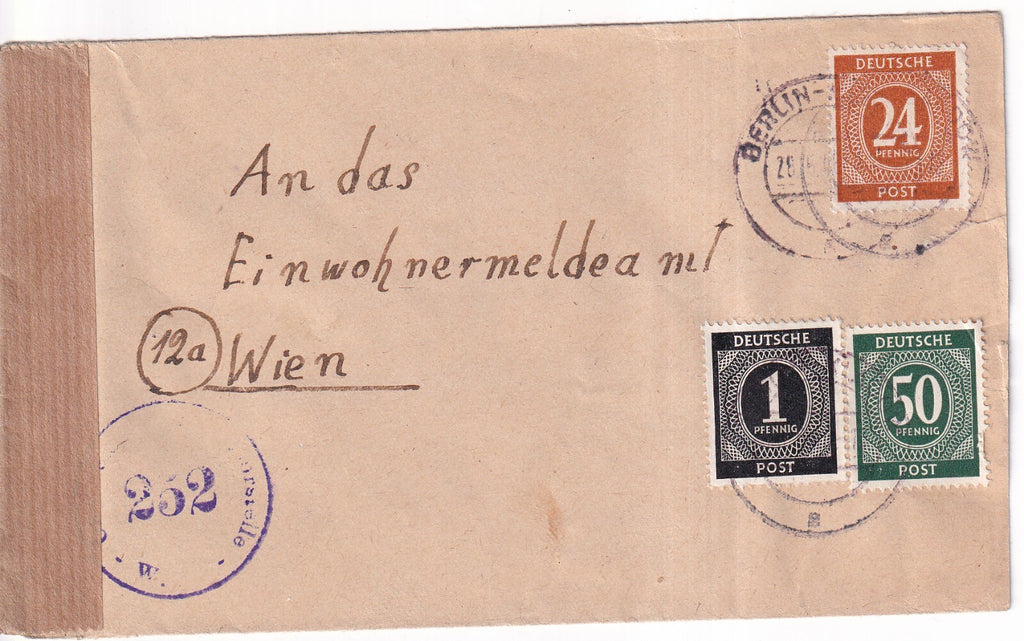 DEUTSCHE
24
PFENNIG
POST
BERLIN-
28
a.
An das
Einwohnermeldeamt
12a Wien
DEUTSCHE
1
PFENNIG
POST
DEUTSCHE
50
PFENNIG
POST
a
252
W.